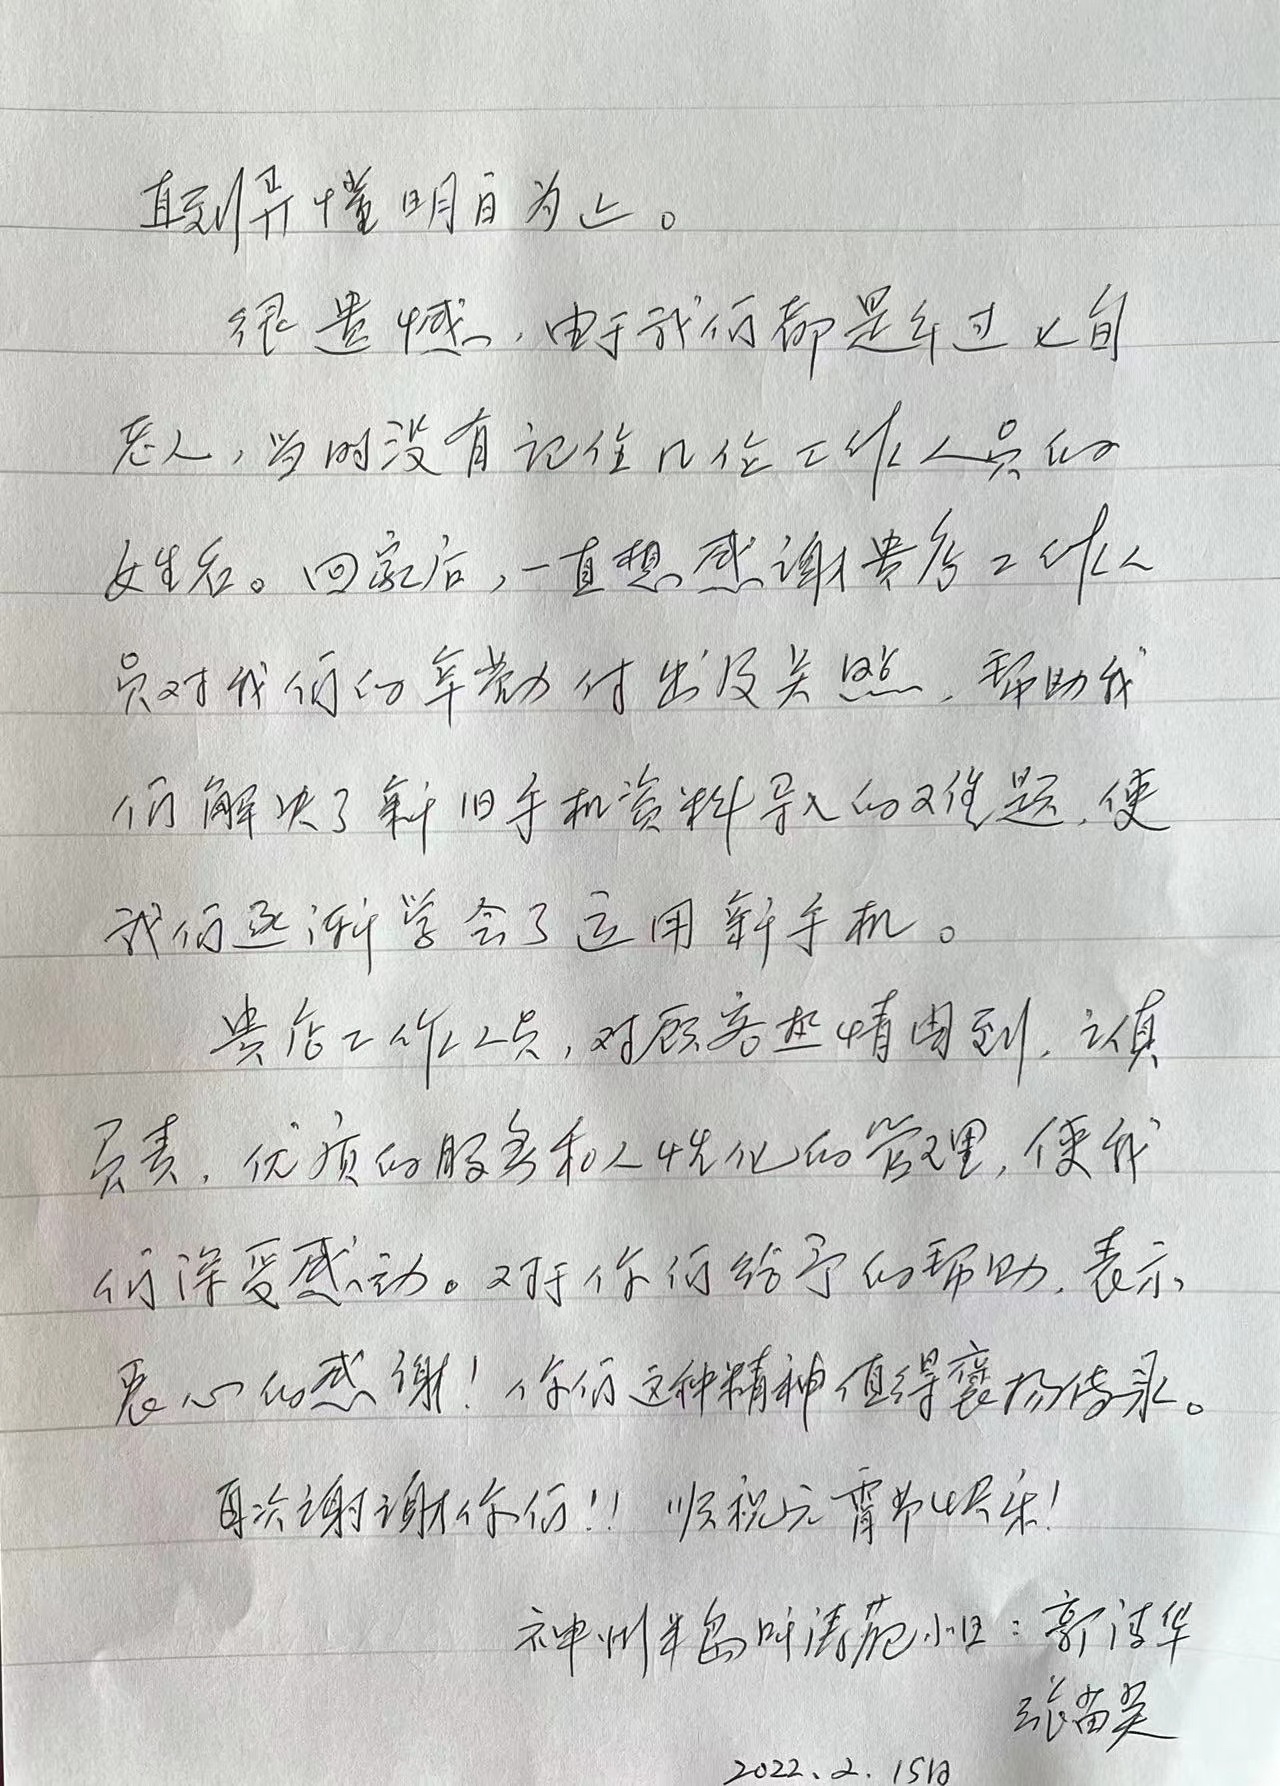 直到弄懂明白为止。
很遗憾，由于我们都是年过七旬
老人，当时没有记住几位工作人员的
姓名。回家后，一直想感谢贵店工作人
员对我们的辛勤付出及关照，帮助我
们解决了新旧手机资料导入的难题，使
我们逐渐学会了运用新手机。
贵店工作人员，对顾客热情周到，认真
负责，优质的服务和人性化的管理，使我
们深受感动。对于你们给予的帮助，表示
衷心的感谢！你们这种精神值得褒扬传承。
再次谢谢你们！！顺祝元宵节快乐！
神州半岛听涛苑小区：郭清华
张苗英
2022.2.15日